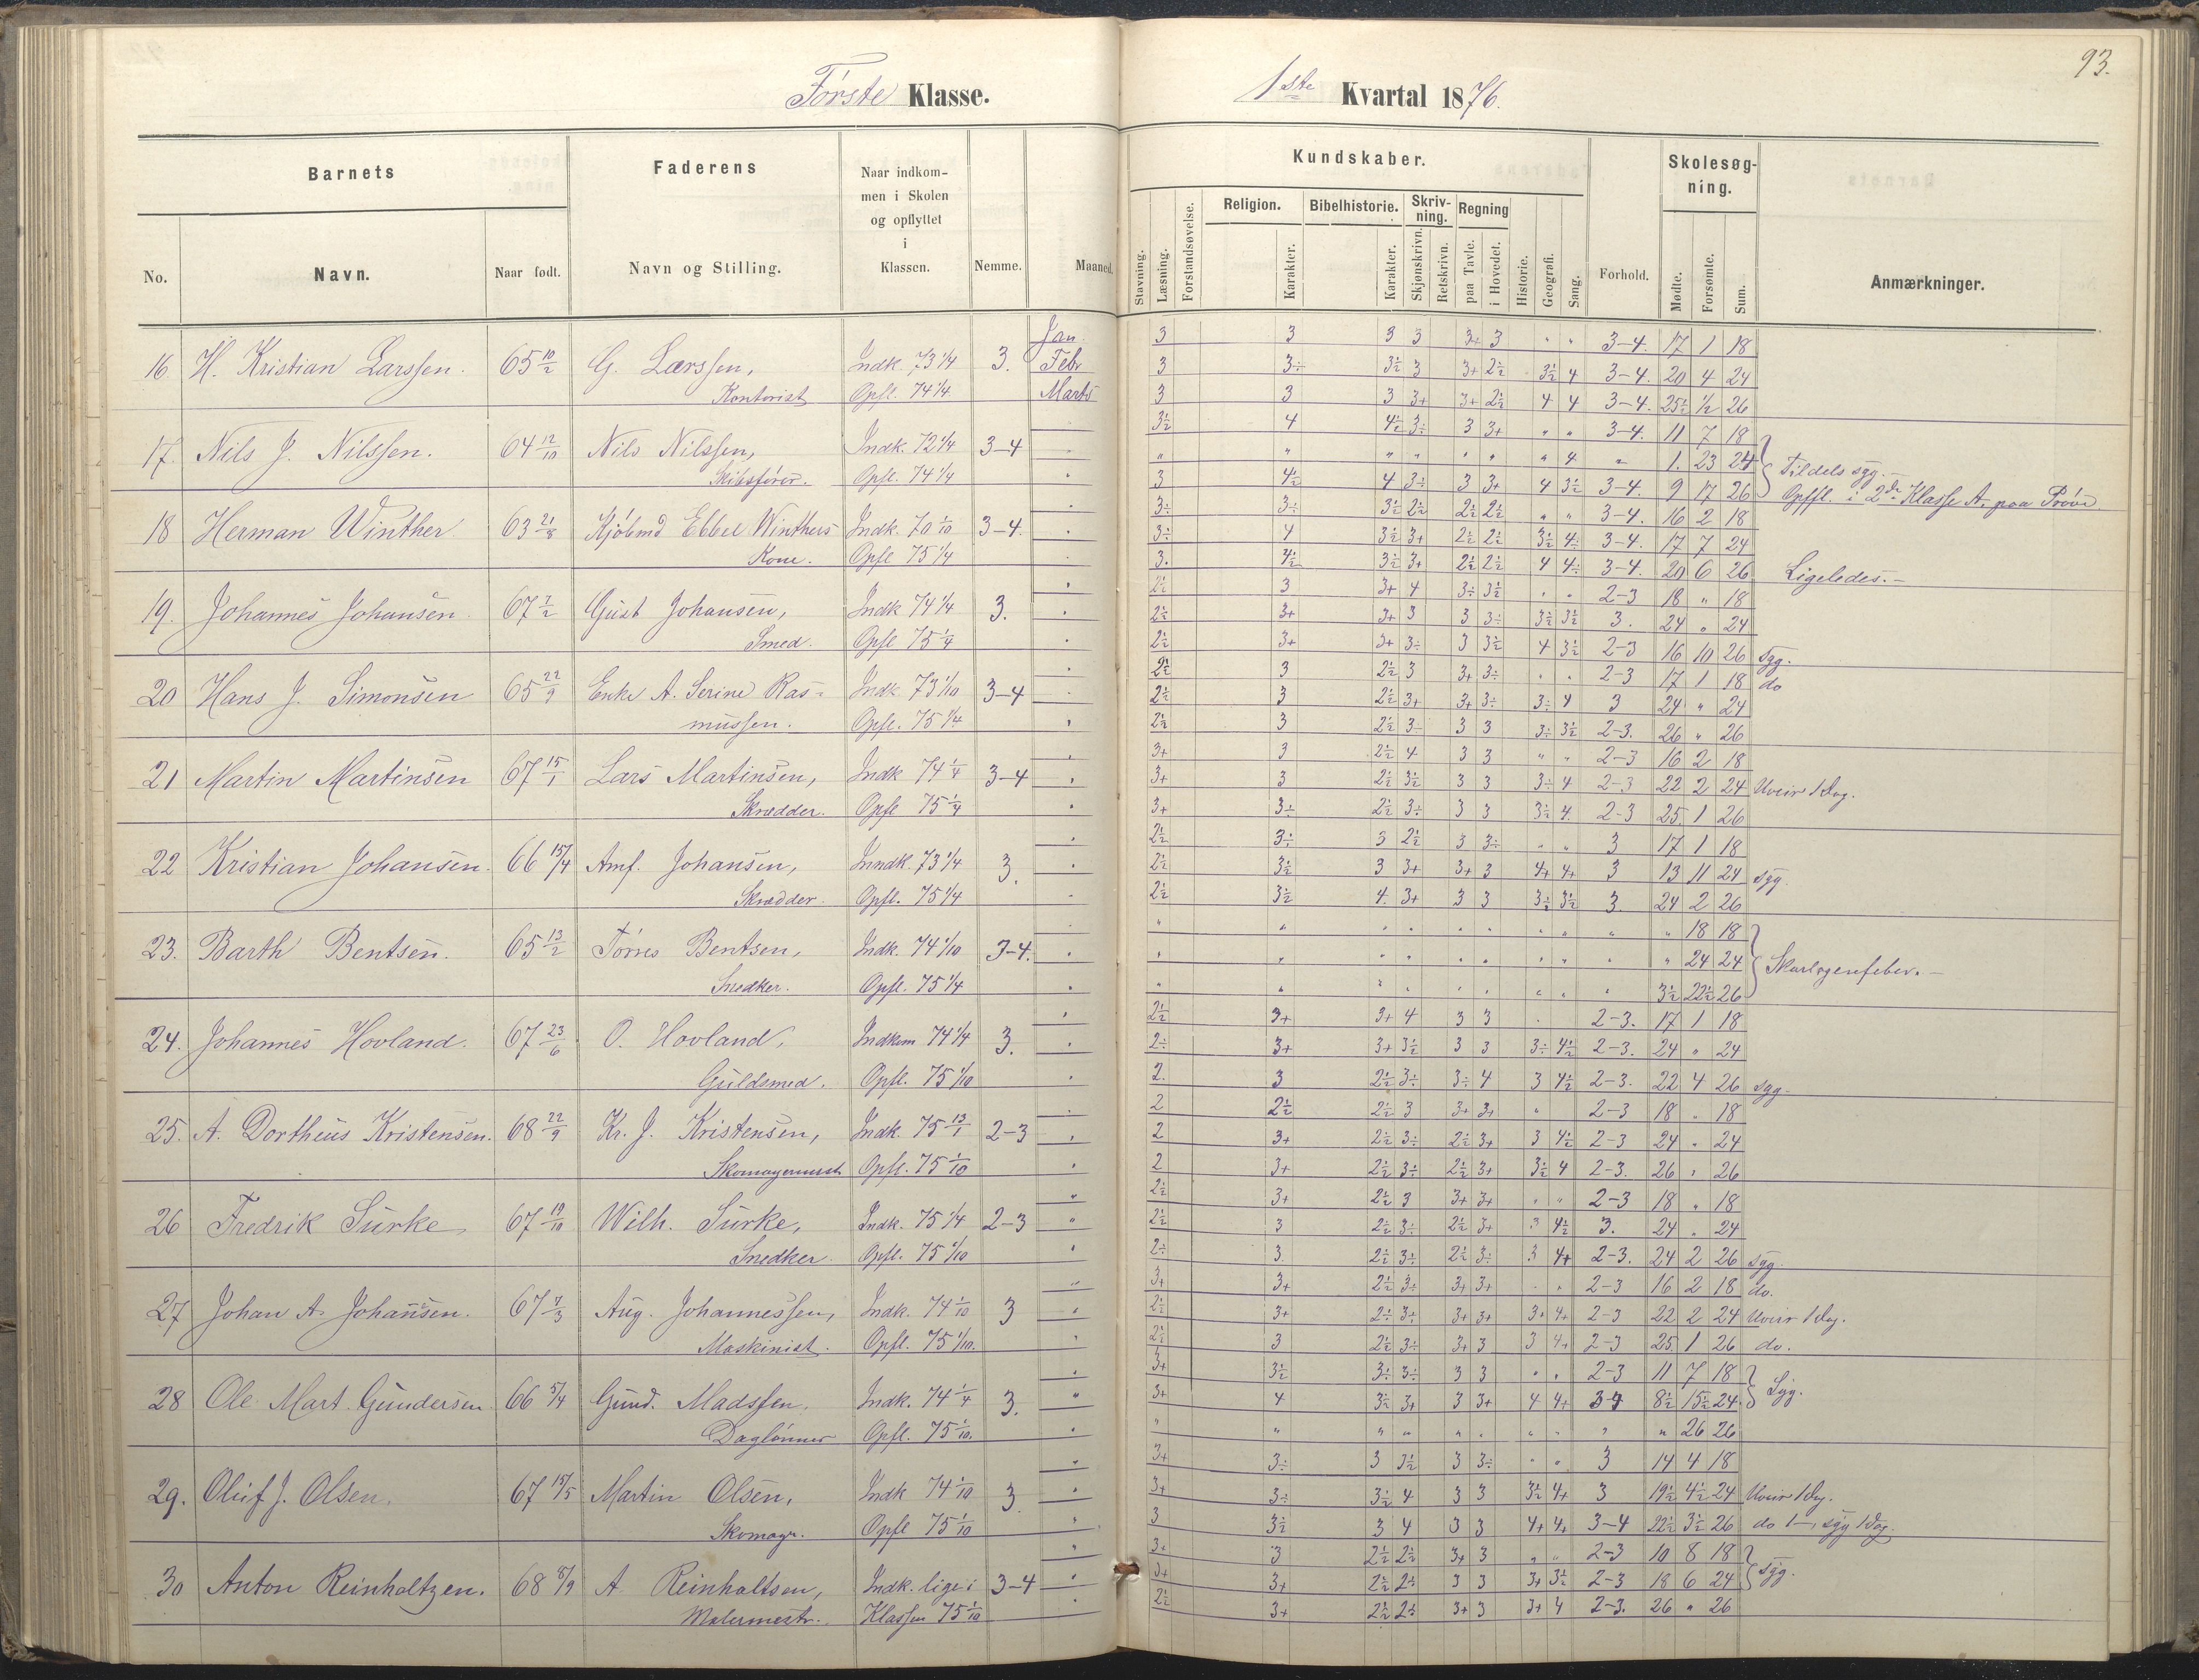 93.
Første Klasse.
1ste Kvartal 1876.
Barnets
Faderens
Naar indkom-
men i Skolen
og opflyttet
i
Klassen.
Nemme.
Maaned.
No.
Navn.
Naar født.
Navn og Stilling.
Kundskaber.
Skolesøg-
ning.
Stavning.
Læsning.
Forstandsøvelse.
Religion.
Karakter.
Bibelhistorie.
Karakter.
Skriv-
ning.
Skjønskrivn.
Retskrivn.
Regning
paa Tavle.
i Hovedet.
Historie.
Geografi.
Sang.
Forhold.
Mødte.
Forsømte.
Sum.
Anmærkninger.
Jan. 3 3 3 3 3+ 3 " " 3-4. 17 1 18
16 H. Kristian Larssen. 65 10/2 G. Larssen, Indk. 73 1/4 3. Febr 3 3÷ 3½ 3 3+ 2½ 3½ 4 3-4. 20 4 24
Kontorist Opfl. 74 1/4. Marts 3 3 3 3+ 3+ 2½ 4 4 3-4. 25½ ½ 26
3½ 4 4½ 3÷ 3 3+ " " 3-4. 11 7 18
17. Nils J. Nilssen. 64 12/10 Nils Nilssen, Indk. 72 1/4 3-4 " " " " " " " 4 " 1. 23 24 Tildels syg.-
Skibsfører. Opfl. 74 1/4 3 4½ 4 3÷ 3 3+ 4 3½ 3-4. 9 17 26 Opffl. i 2de Klasse A. paa Prøve
3÷ 3÷ 3½ 2½ 2½ 2½ " " 3-4. 16 2 18
18 Herman Winther 63 21/8 Kjøbmd Ebbel Winthers Indk. 70 1/10 3-4. 3÷ 4 3½ 3+ 2½ 2½ 3½ 4÷ 3-4. 17 7 24
Kone. Opfl 75 1/4 3. 4½ 3½ 3+ 2½ 2½ 4 4÷ 3-4. 20 6 26 Ligeledes.-
2½ 3 3+ 4 3÷ 3½ " " 2-3 18 " 18
19. Johannes Johansen. 67 7/2 Gust Johansen, Indk 74 1/4 3. 2½ 3+ 3+ 3 3 3÷ 3½ 3½ 3. 24 " 24
Smed. Opfl 75 1/4 2½ 3+ 3+ 3÷ 3 3½ 4 3½ 2-3 16 10 26 syg.
2½ 3 2½ 3 3+ 3÷ " " 2-3 17 1 18 do
20 Hans J. Simonsen 65 22/9 Enke A. Serine Ras- Indk. 73 1/10 3-4 2½ 3 2½ 3+ 3+ 3÷ 3÷ 4 3 24 " 24
mussen. Opfl. 75 1/4 2½ 3 2½ 3÷ 3 3 3÷ 3½ 2-3. 26 " 26
3+ 3 2½ 4 3 3 " " 2-3 16 2 18
21 Martin Martinsen 67 15/1 Lars Martinsen, Indk 74 1/4 3-4 3+ 3 2½ 3½ 3 3 3÷ 4 2-3 22 2 24 Uveir 1 Dag.
Skrædder. Opfl 75 1/4 3+ 3÷ 2½ 3÷ 3 3 3½ 4. 2-3 25. 1 26
2½ 3÷ 3 2½ 3 3÷ " " 3 17 1 18
22 Kristian Johansen. 66 15/4 Amf. Johansen, Inndk. 73 1/4 3. 2½ 3½ 3 3+ 3+ 3 4+ 4+ 3 13 11 24 syg.
Skrædder. Opfl. 75 1/4 2½ 3½ 4. 3+ 3 3 3½ 3½ 3. 24 2 26
" " " " " " " " " " 18 18
23. Barth Bentsen. 65 13/2 Tørres Bentsen, Indk. 74 1/10 3-4. " " " " " " " " " " 24 24 Skarlagensfeber.-
Snedker. Opfl. 75 1/4 " " " " " " " " " 3½ 22½ 26
2½ 3+ 3+ 4 3 3 2-3. 17 1 18
24. Johannes Hovland. 67 23/6 O. Hovland, Indkom 74 1/4 3. 2÷ 3+ 3+ 3½ 3 3 3÷ 4½ 2-3. 24 " 24
Guldsmed. Opfl. 75 1/10 2. 3 2½ 3÷ 3÷ 4 3 4½ 2-3. 22 4 26 syg-
2 2½ 2½ 3 3+ 3+ " 2-3 18 " 18
25. A. Dortheus Kristensen. 68 22/9 Kr. J. Kristensen, Indk. 75 13/1 2-3 2 3+ 2½ 3÷ 2½ 3+ 3 4½ 2-3 24 " 24
Skomagermest Opfl. 75 1/10 2 3+ 2½ 3÷ 2½ 3+ 3½ 4 2-3. 26 " 26
2½ 3+ 2½ 3 3+ 3+ " " 2-3 18 " 18
26 Fredrik Surke, 67 19/10 Wilh. Surke, Indk. 75 1/4 2-3 2½ 3 2½ 3÷ 2½ 3+ 3 4½ 3. 24 " 24
Snedker. Opfl. 75 1/10 2÷ 3 2½ 3÷ 2½ 3÷ 3 4+ 2-3. 24 2 26 syg.
3+ 3+ 2½ 3÷ 3+ 3+ " " 2-3 16 2 18 do.
27 Johan A. Johansen. 67 7/3 Aug. Johannessen, Indk. 74 1/10 3 2½ 3+ 2÷ 3+ 3+ 3+ 3+ 4+ 2-3 22 2 24 Uveir 1 Dag.
Maskinist. Opfl. 75 1/10. 2½ 3 2½ 3÷ 3+ 3 3 4+ 2-3 25. 1 26 do.
3+ 3½ 3÷ 3÷ 3 3 " " 2-3 11 7 18
28 Ole Mart. Gundersen 66 5/4 Gund. Madssen, Indk. 74 1/4 3. 3+ 4 3½ 3+ 3 3+ 4 4+ 3-4 8½ 15½ 24 Syg.
Daglønner Opfl. 75 1/10. " " " " " " " " " " 26 26
3+ 3÷ 3 3½ 3 3÷ " " 3 14 4 18
29. Oluf J. Olsen. 67 15/5 Martin Olsen, Indk 74 1/10 3 3+ 3÷ 3½ 4 3 3 3½ 4+ 3 19½ 4½ 24 Uveir 1 Dg.
Skomagr. Opfl 75 1/10 3 3½ 3 4 3 3 4+ 4+ 3-4 22½ 3½ 26 do 1-, syg 1 Dag.
3+ 3 2½ 2½ 3+ 3 " " 2-3 10 8 18
30 Anton Reinholtzen. 68 8/9 A Reinholtsen, Indk. lige i 3-4 3+ 3+ 2½ 2÷ 3 3 3+ 3½ 2-3 18 6 24 Syg.
Malermestr. Klassen 75 1/10 2½ 3+ 2½ 2÷ 3+ 3 3+ 4 2-3. 26 " 26